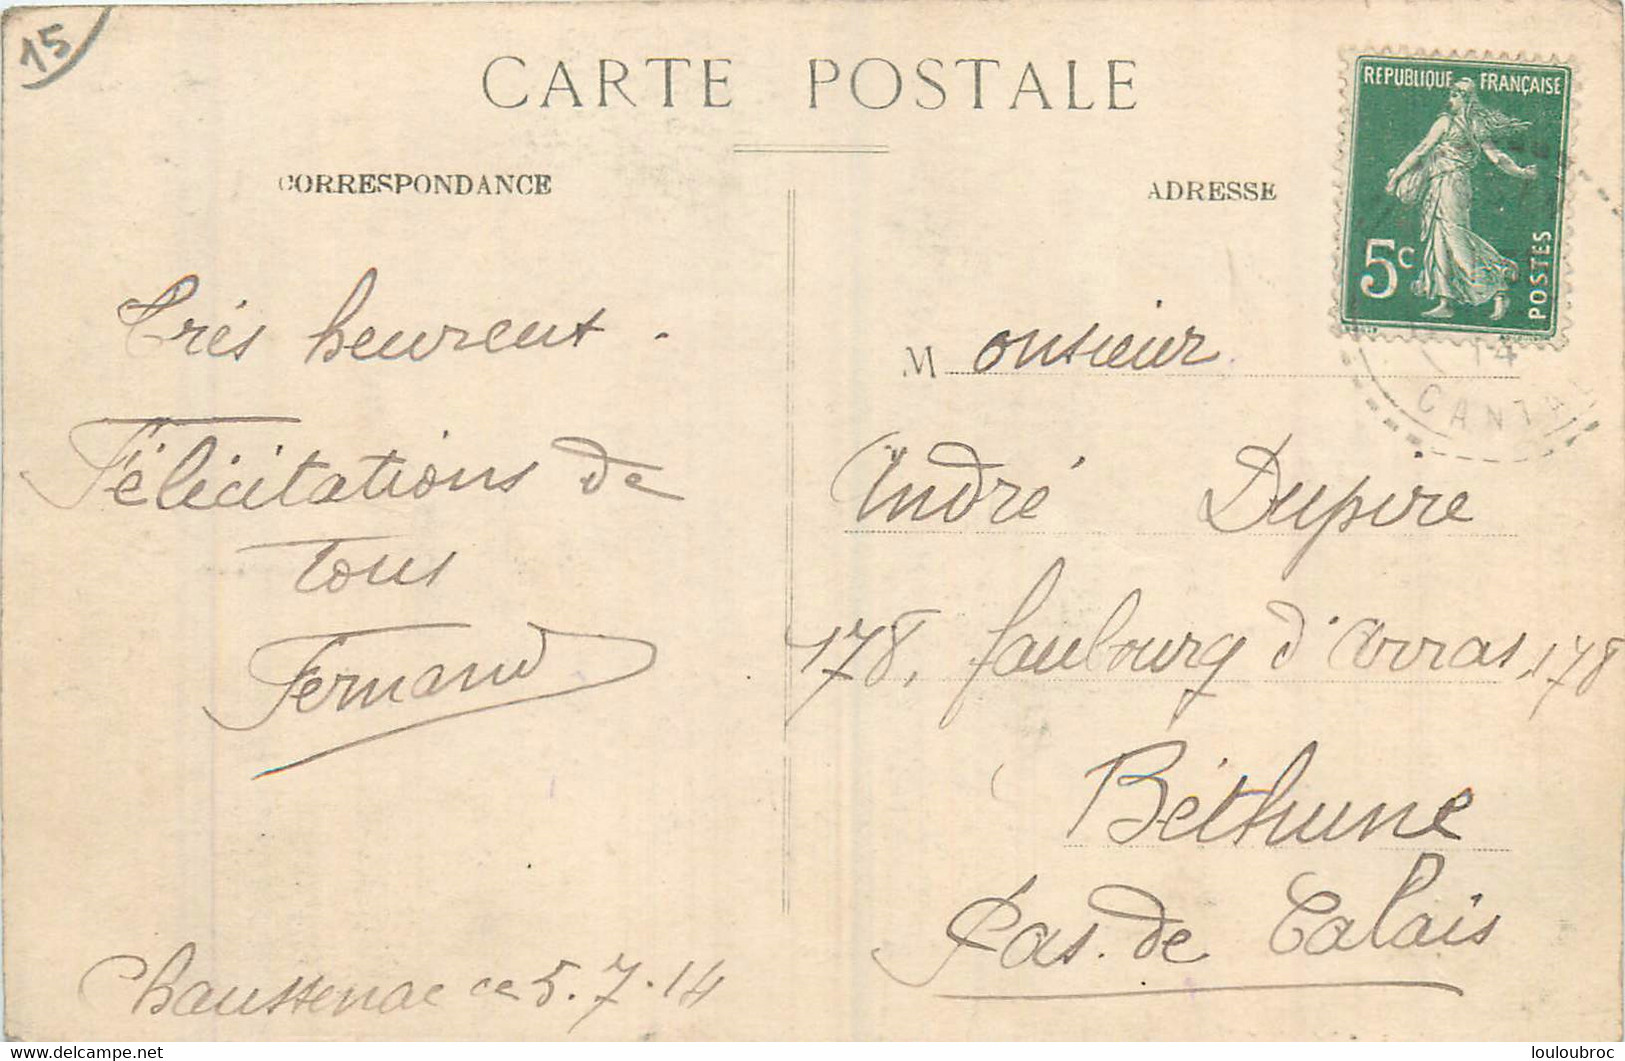 15
CARTE POSTALE
CORRESPONDANCE
ADRESSE
REPUBLIQUE FRANÇAISE
5c
POSTES
14
CANTAL
Très heureux.
Félicitations de
tous
Fernand
Chaussenac ce 5.7.14
Monsieur
André Dupire
178, faubourg d'arras, 178
Béthune
Pas. de Calais
delcampe.net
louloubroc